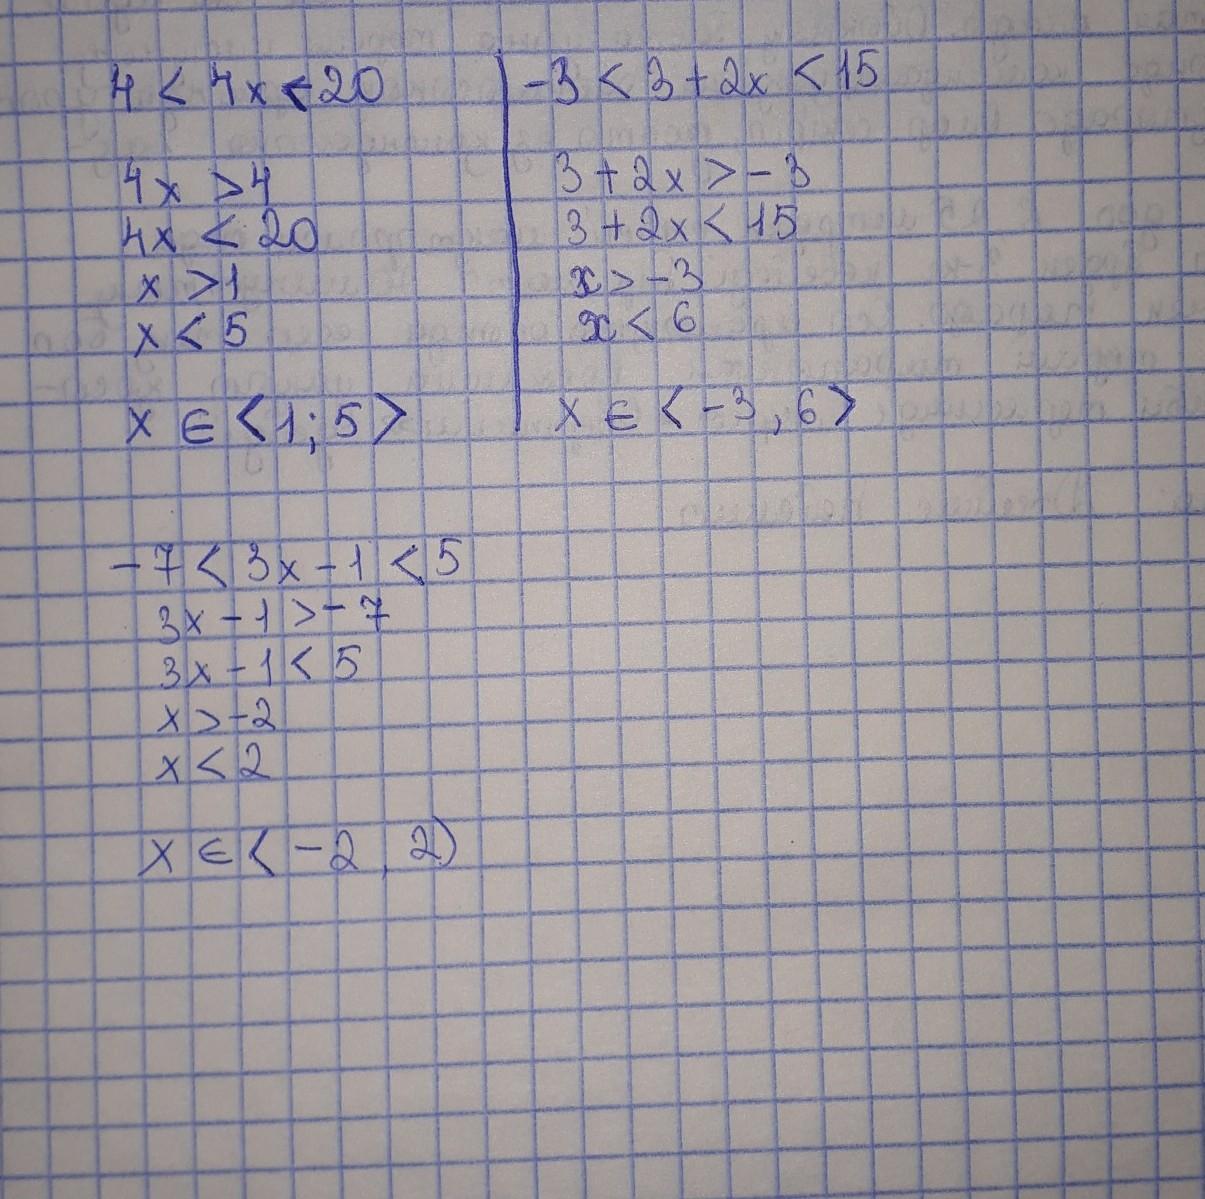 4 < 4x < 20
4x > 4
4x < 20
x > 1
x < 5
x ∈ <1; 5>
-3 < 3 + 2x < 15
3 + 2x > -3
3 + 2x < 15
x > -3
x < 6
x ∈ <-3, 6>
-7 < 3x - 1 < 5
3x - 1 > -7
3x - 1 < 5
x > -2
x < 2
x ∈ < -2, 2)